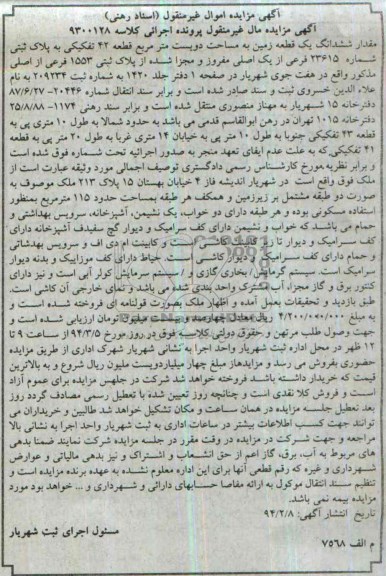 آگهی مزایده اموال غیرمنقول (اسناد رهنی)
آگهی مزایده مال غیرمنقول پرونده اجرائی کلاسه ۹۳۰۰۱۲۸
مقدار ششدانگ یک قطعه زمین به مساحت دویست متر مربع قطعه ۴۲ تفکیکی به پلاک ثبتی
شماره ۲۳۶۱۵ فرعی از یک اصلی مفروز و مجزا شده از پلاک ثبتی ۱۵۵۳ فرعی از اصلی
مذکور واقع در هفت جوی شهریار در صفحه ۱ دفتر جلد ۱۴۲۰ به شماره ثبت ۲۰۹۲۳۴ به نام
علاء الدین خسروی ثبت و سند صادر شده است و برابر سند انتقال شماره ۲۰۴۴۶- ۸۷/۶/۲۷
دفترخانه ۱۵ شهریار به مهناز منصوری منتقل شده است و برابر سند رهنی ۱۱۷۴- ۲۵/۸/۸۸
دفترخانه ۱۰۱۵ تهران در رهن ابوالقاسم قدمی می باشد به حدود شمالا به طول ۱۰ متری پی به
قطعه ۴۳ تفکیکی جنوبا به طول ۱۰ متر پی به خیابان ۱۴ متری غربا به طول ۲۰ متر پی به قطعه
۴۱ تفکیکی که به علت عدم ایفای تعهد منجر به صدور اجرائیه تحت شماره فوق شده است
و برابر نظریه مورخ کارشناس رسمی دادگستری توصیف اجمالی مورد وثیقه عبارت است از
ملک فوق واقع است در شهریار اندیشه فاز ۴ خیابان بهستان ۱۵ پلاک ۲۱۳ ملک موصوف به
صورت دو طبقه مشتمل بر زیرزمین و همکف هر طبقه بمساحت حدود ۱۱۵ مترمربع بمنظور
استفاده مسکونی بوده و هر طبقه دارای دو خواب، یک نشیمن، آشپزخانه، سرویس بهداشتی و
حمام می باشد که خواب و نشیمن دارای کف سرامیک و دیوار گچ سفیدف آشپزخانه دارای
کف سرامیک و دیوار تا زیر کاشی است و کابینت ام دی اف و سرویس بهداشتی
و حمام دارای کف سرامیک کاشی است. حیاط دارای کف موزاییک و بدنه دیوار
سرامیک است. سیستم گرمایش بخاری گازی و سیستم سرمایش کولر آبی است و نیز دارای
کنتور برق و گاز مجزا، آب مشترک واحد بندی شده می باشد و نمای خارجی آن کاشی است.
طبق بازدید و تحقیقات بعمل آمده و اظهار ملک بصورت قولنامه ای فروخته شده است و
به مبلغ ۴/۲۰۰/۰۰۰/۰۰۰ ریال معادل چهارصد و بیست میلیون تومان ارزیابی شده است و
جهت وصول طلب مرتهن و حقوق دولتی کلاسه فوق در روز مورخ ۹۴/۳/۵ از ساعت ۹ تا
۱۲ ظهر در محل اداره ثبت شهریار واحد اجرا به نشانی شهریار شهرک اداری از طریق مزایده
حضوری بفروش می رسد و مزایدهاز مبلغ چهار میلیاردویست ملیون ریال شروع و به بالاترین
قیمت که خریدار داشته باشد فروخته خواهد شد شرکت در جلهس مزایده برای عموم آزاد
است و فروش کلا نقدی است و چنانچه روز تعیین شده با تعطیل رسمی مصادف گردد روز
بعد تعطیل جلسه مزایده در همان ساعت و مکان تشکیل خواهد شد طالبین و خریداران می
توانند جهت کسب اطلاعات بیشتر در ساعات اداری به ثبت شهریار واحد اجرا به نشانی بالا
مراجعه و جهت شرکت در مزایده در وقت مقرر در جلسه مزایده شرکت نمایند ضمنا بدهی
های مربوط به آب، برق، گاز اعم از حق انشعاب و اشتراک و نیز بدهی مالیاتی و عوارض
شهرداری و غیره که رقم قطعی آنها برای این اداره معلوم نشده به عهده برنده مزایده است و
تنظیم سند انتقال موکول به ارائه مفاصا حسابهای دارائی و شهرداری و ... خواهد بود مورد
مزایده بیمه نمی باشد.
تاریخ انتشار آگهی: ۹۴/۲/۸
مسئول اجرای ثبت شهریار
م الف ۷۵۶۸